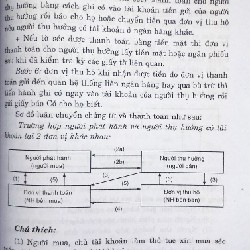 thụ hưởng bằng cách ghi có vào tài khoản tiền gửi của người
thụ hưởng rồi báo cho họ hoặc chuyển tiền qua đơn vị thu hộ
nếu người thụ hưởng có tài khoản ở ngân hàng khác.
+ Nếu tờ séc được thanh toán bằng tiền mặt thì đơn vị
thanh toán cho người thụ hưởng lấy tiền mặt hoặc ngân phiếu
sau khi đã kiểm tra kỹ các giấy tờ liên quan.
Bước 6: đơn vị thu hộ khi nhận được tiền do đơn vị thanh
toán gửi đến quan hệ thống liên ngân hàng, hay qua bù trừ thì
tiến hành ghi có ngay vào tài khoản của người thụ hưởng rồi
gửi giấy báo Có cho họ biết.
Sơ đồ luân chuyển chứng từ và thanh toán như sau:
Trường hợp người phát hành và người thụ hưởng có tài
khoản tại 2 đơn vị khác nhau:
(2a)
Người phát hành
(người mua)
Người thụ hưởng
(người bán)
(2b)
(1)
(5)
(3)
(6)
Đơn vị thanh toán
(NH bên mua)
Đơn vị thu hộ
(NH bên bán)
(4)
Chú thích:
(1) Người mua, chủ tài khoản làm thủ tục xin mua séc